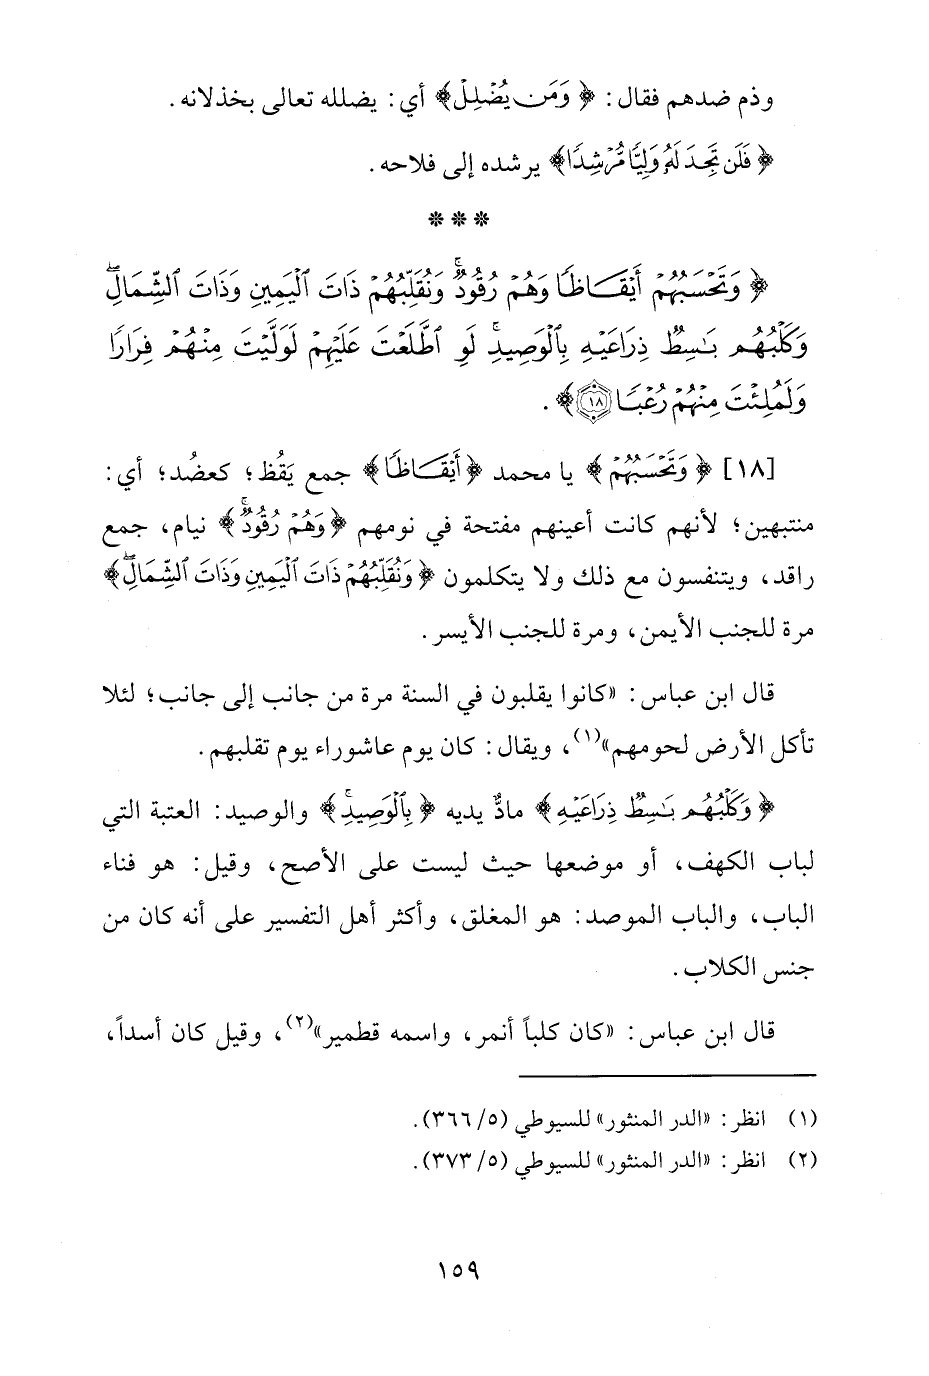 وذم ضدهم فقال: ﴿ وَمَن يُضْلِلْ﴾ أي: يضلله تعالى بخذلانه.
﴿ فَلَن تَجِدَ لَهُۥ وَلِيًّا مُّرْشِدًا﴾ يرشده إلى فلاحه.
* * *
﴿ وَتَحْسَبُهُمْ أَيْقَاظًا وَهُمْ رُقُودٌ ۚ وَنُقَلِّبُهُمْ ذَاتَ ٱلْيَمِينِ وَذَاتَ ٱلشِّمَالِ ۖ
وَكَلْبُهُم بَـٰسِطٌ ذِرَاعَيْهِ بِٱلْوَصِيدِ ۚ لَوِ ٱطَّلَعْتَ عَلَيْهِمْ لَوَلَّيْتَ مِنْهُمْ فِرَارًا
وَلَمُلِئْتَ مِنْهُمْ رُعْبًا ١٨﴾ .
[١٨] ﴿ وَتَحْسَبُهُمْ ﴾ يا محمد ﴿أَيْقَاظًا﴾ جمع يَقُظ؛ كعضُد؛ أي:
منتبهين؛ لأنهم كانت أعينهم مفتحة في نومهم ﴿وَهُمْ رُقُودٌ ۚ﴾ نيام، جمع
راقد، ويتنفسون مع ذلك ولا يتكلمون ﴿ وَنُقَلِّبُهُمْ ذَاتَ ٱلْيَمِينِ وَذَاتَ ٱلشِّمَالِ ۖ﴾
مرة للجنب الأيمن، ومرة للجنب الأيسر.
قال ابن عباس: «كانوا يقلبون في السنة مرة من جانب إلى جانب؛ لئلا
تأكل الأرض لحومهم»(١)، ويقال: كان يوم عاشوراء يوم تقلبهم.
﴿ وَكَلْبُهُم بَـٰسِطٌ ذِرَاعَيْهِ﴾ مادٌّ يديه ﴿ بِٱلْوَصِيدِ ۚ﴾ والوصيد: العتبة التي
لباب الكهف، أو موضعها حيث ليست على الأصح، وقيل: هو فناء
الباب، والباب الموصد: هو المغلق، وأكثر أهل التفسير على أنه كان من
جنس الكلاب.
قال ابن عباس: «كان كلباً أنمر، واسمه قطمير»(٢)، وقيل كان أسداً،
(١) انظر: «الدر المنثور» للسيوطي (٥/ ٣٦٦).
(٢) انظر: «الدر المنثور» للسيوطي (٥/ ٣٧٣).
١٥٩